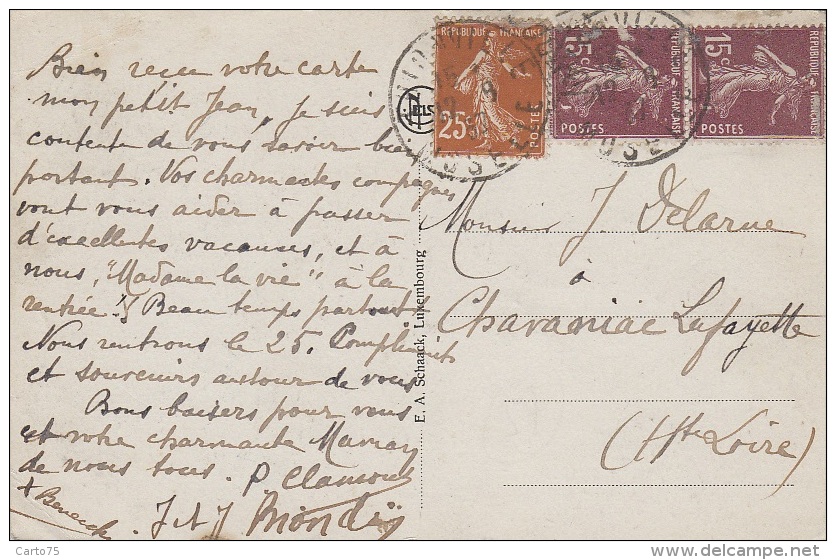 Bien reçu votre carte
mon petit Jean, je suis
contente de vous savoir bien
portant. Vos charmantes compagnes
vont vous aider à passer
d'excellentes vacances, et à
nous, "Madame la vie" à la
rentrée! Beau temps partout.
Nous rentrons le 25. Compliments
et souvenirs autour de vous
Bons baisers pour vous
et votre charmante Maman
de nous tous. P. Clamons
J et J
E. A. Schaack, Luxembourg
RÉPUBLIQUE FRANÇAISE
25c
POSTES
RÉPUBLIQUE FRANÇAISE
15c
POSTES
RÉPUBLIQUE FRANÇAISE
15c
POSTES
MOSELLE
MOSELLE
Monsieur J. Delarue
à
Chavaniac Lafayette
(Hte Loire)
© - Carto75
http://www.delcampe.net